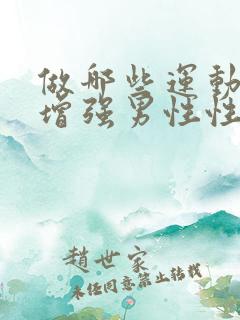 做哪些运動
增强男性性
趙世家
未经同意禁止转载